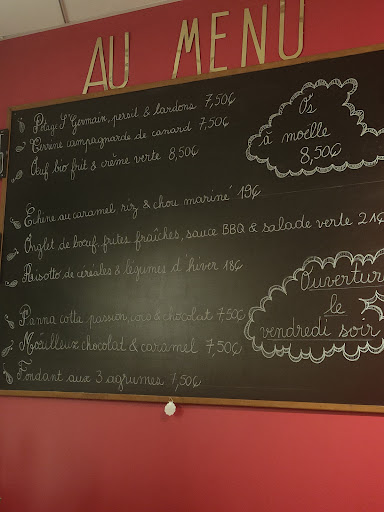 AU MENU
Potage St Germain, persil & lardons 7,50€
Terrine campagnarde de canard 7,50€
Œuf bio frit & crème verte 8,50€
Os
à moëlle
8,50€
Echine au caramel riz & chou mariné 19€
Onglet de bœuf, frites fraîches, sauce BBQ & salade verte 21€
Risotto de céréales & légumes d'hiver 18€
Panna cotta passion, coco & chocolat 7,50€
Moelleux chocolat & caramel 7,50€
Fondant aux 3 agrumes 7,50€
Ouvertur
le
vendredi soir